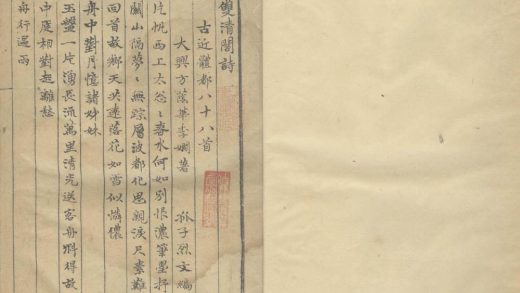 雙清閣詩
古近體都八十八首
大興方蔭華季嫻著 孫子烈文編
片帆西上太怱怱春水何如別恨濃筆墨抒
關山隔夢夢無踪層波都化思親淚尺素難
回首故鄉天共遠落花如雪似憐儂
舟中對月憶諸姊妹
玉盤一片湧長流萬里清光送客舟料得故
中應相對起離愁
舟行遇雨